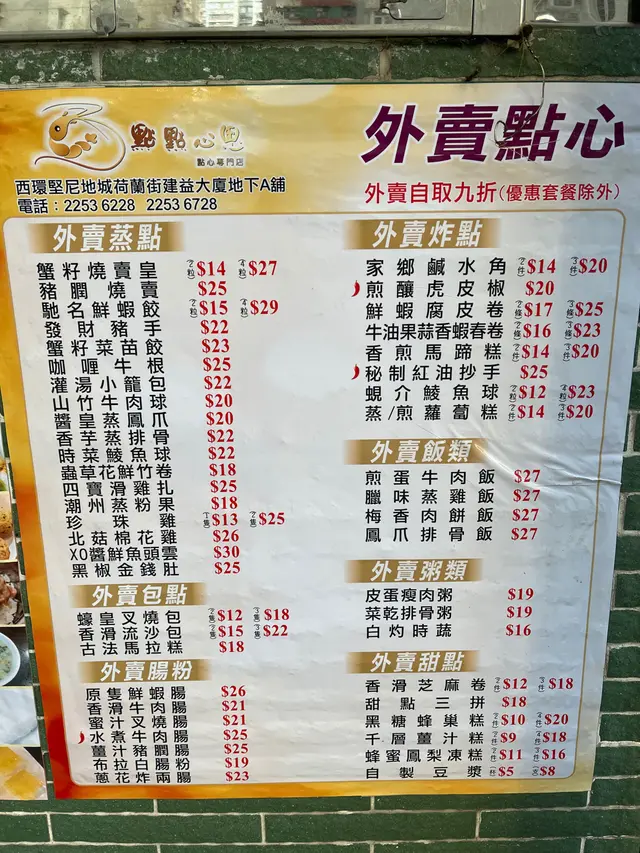 點點心思
點心專門店
外賣點心
西環堅尼地城荷蘭街建益大廈地下A舖
電話：2253 6228 2253 6728
外賣自取九折(優惠套餐除外)
外賣蒸點
蟹籽燒賣皇 (2粒) $14 (4粒) $27
豬膶燒賣 $25
馳名鮮蝦餃 (2粒) $15 (4粒) $29
發財豬手 $22
蟹籽菜苗餃 $23
咖喱牛根 $25
灌湯小籠包 $22
山竹牛肉球 $20
醬皇蒸鳳爪 $20
香芋蒸排骨 $22
時菜鯪魚球 $22
蟲草花鮮竹卷 $18
四寶滑雞扎 $25
潮州蒸粉果 $18
珍珠雞 (1隻) $13 (2隻) $25
北菇棉花雞 $26
XO醬鮮魚頭雲 $30
黑椒金錢肚 $25
外賣包點
蠔皇叉燒包 (2隻) $12 (3隻) $18
香滑流沙包 (2隻) $15 (3隻) $22
古法馬拉糕 $18
外賣腸粉
原隻鮮蝦腸 $26
香滑牛肉腸 $21
蜜汁叉燒腸 $21
水煮牛肉腸 $25
薑汁豬膶腸 $25
布拉白腸粉 $19
蔥花炸兩腸 $23
外賣炸點
家鄉鹹水角 (2件) $14 (3件) $20
煎釀虎皮椒 $20
鮮蝦腐皮卷 (2條) $17 (3條) $25
牛油果蒜香蝦春卷 (2條) $16 (3條) $23
香煎馬蹄糕 (2件) $14 (3件) $20
秘制紅油抄手 $25
蜆介鯪魚球 (2粒) $12 (4粒) $23
蒸/煎蘿蔔糕 (2件) $14 (3件) $20
外賣飯類
煎蛋牛肉飯 $27
臘味蒸雞飯 $27
梅香肉餅飯 $27
鳳爪排骨飯 $27
外賣粥類
皮蛋瘦肉粥 $19
菜乾排骨粥 $19
白灼時蔬 $16
外賣甜點
香滑芝麻卷 (2件) $12 (3件) $18
甜點三拼 $18
黑糖蜂巢糕 (2件) $10 (4件) $20
千層薑汁糕 (2件) $9 (4件) $18
蜂蜜鳳梨凍糕 (2件) $11 (3件) $16
自製豆漿 (杯) $5 $8